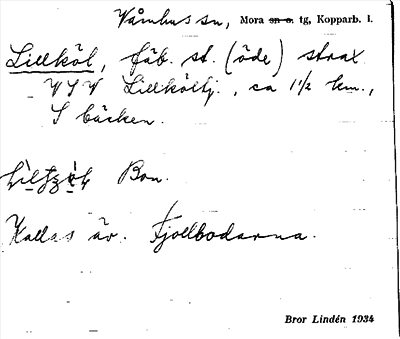 Våmhus sn, Mora sn o. tg, Kopparb. l.
Lillköl, fäb. st. (öde) strax
VSV Lillköltj., ca 1 1/2 km.,
S bäcken.
Bon.
Kallas äv. Fjollbodarna.
Bror Lindén 1934